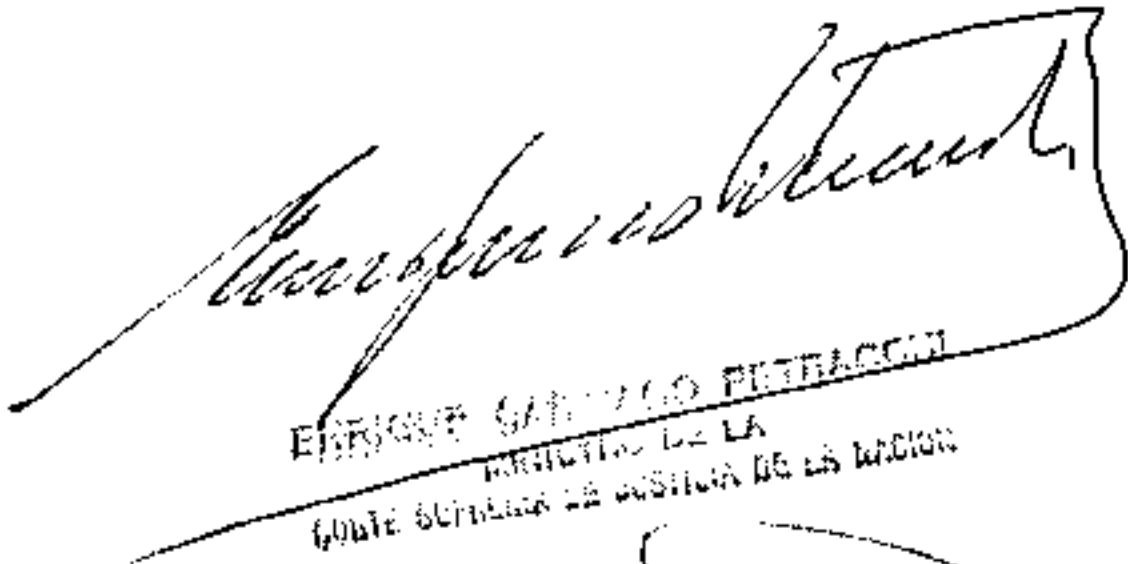 ENRIQUE SANTIAGO PETRACCHI
MINISTRO DE LA
CORTE SUPREMA DE JUSTICIA DE LA NACION